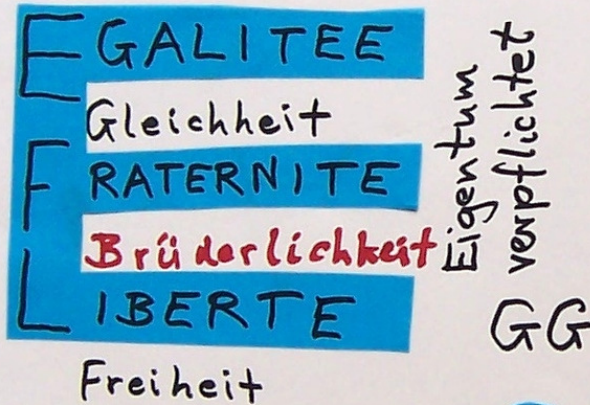 EGALITEE
Gleichheit
FRATERNITE
Brüderlichkeit
LIBERTE
Freiheit
Eigentum
verpflichtet
GG